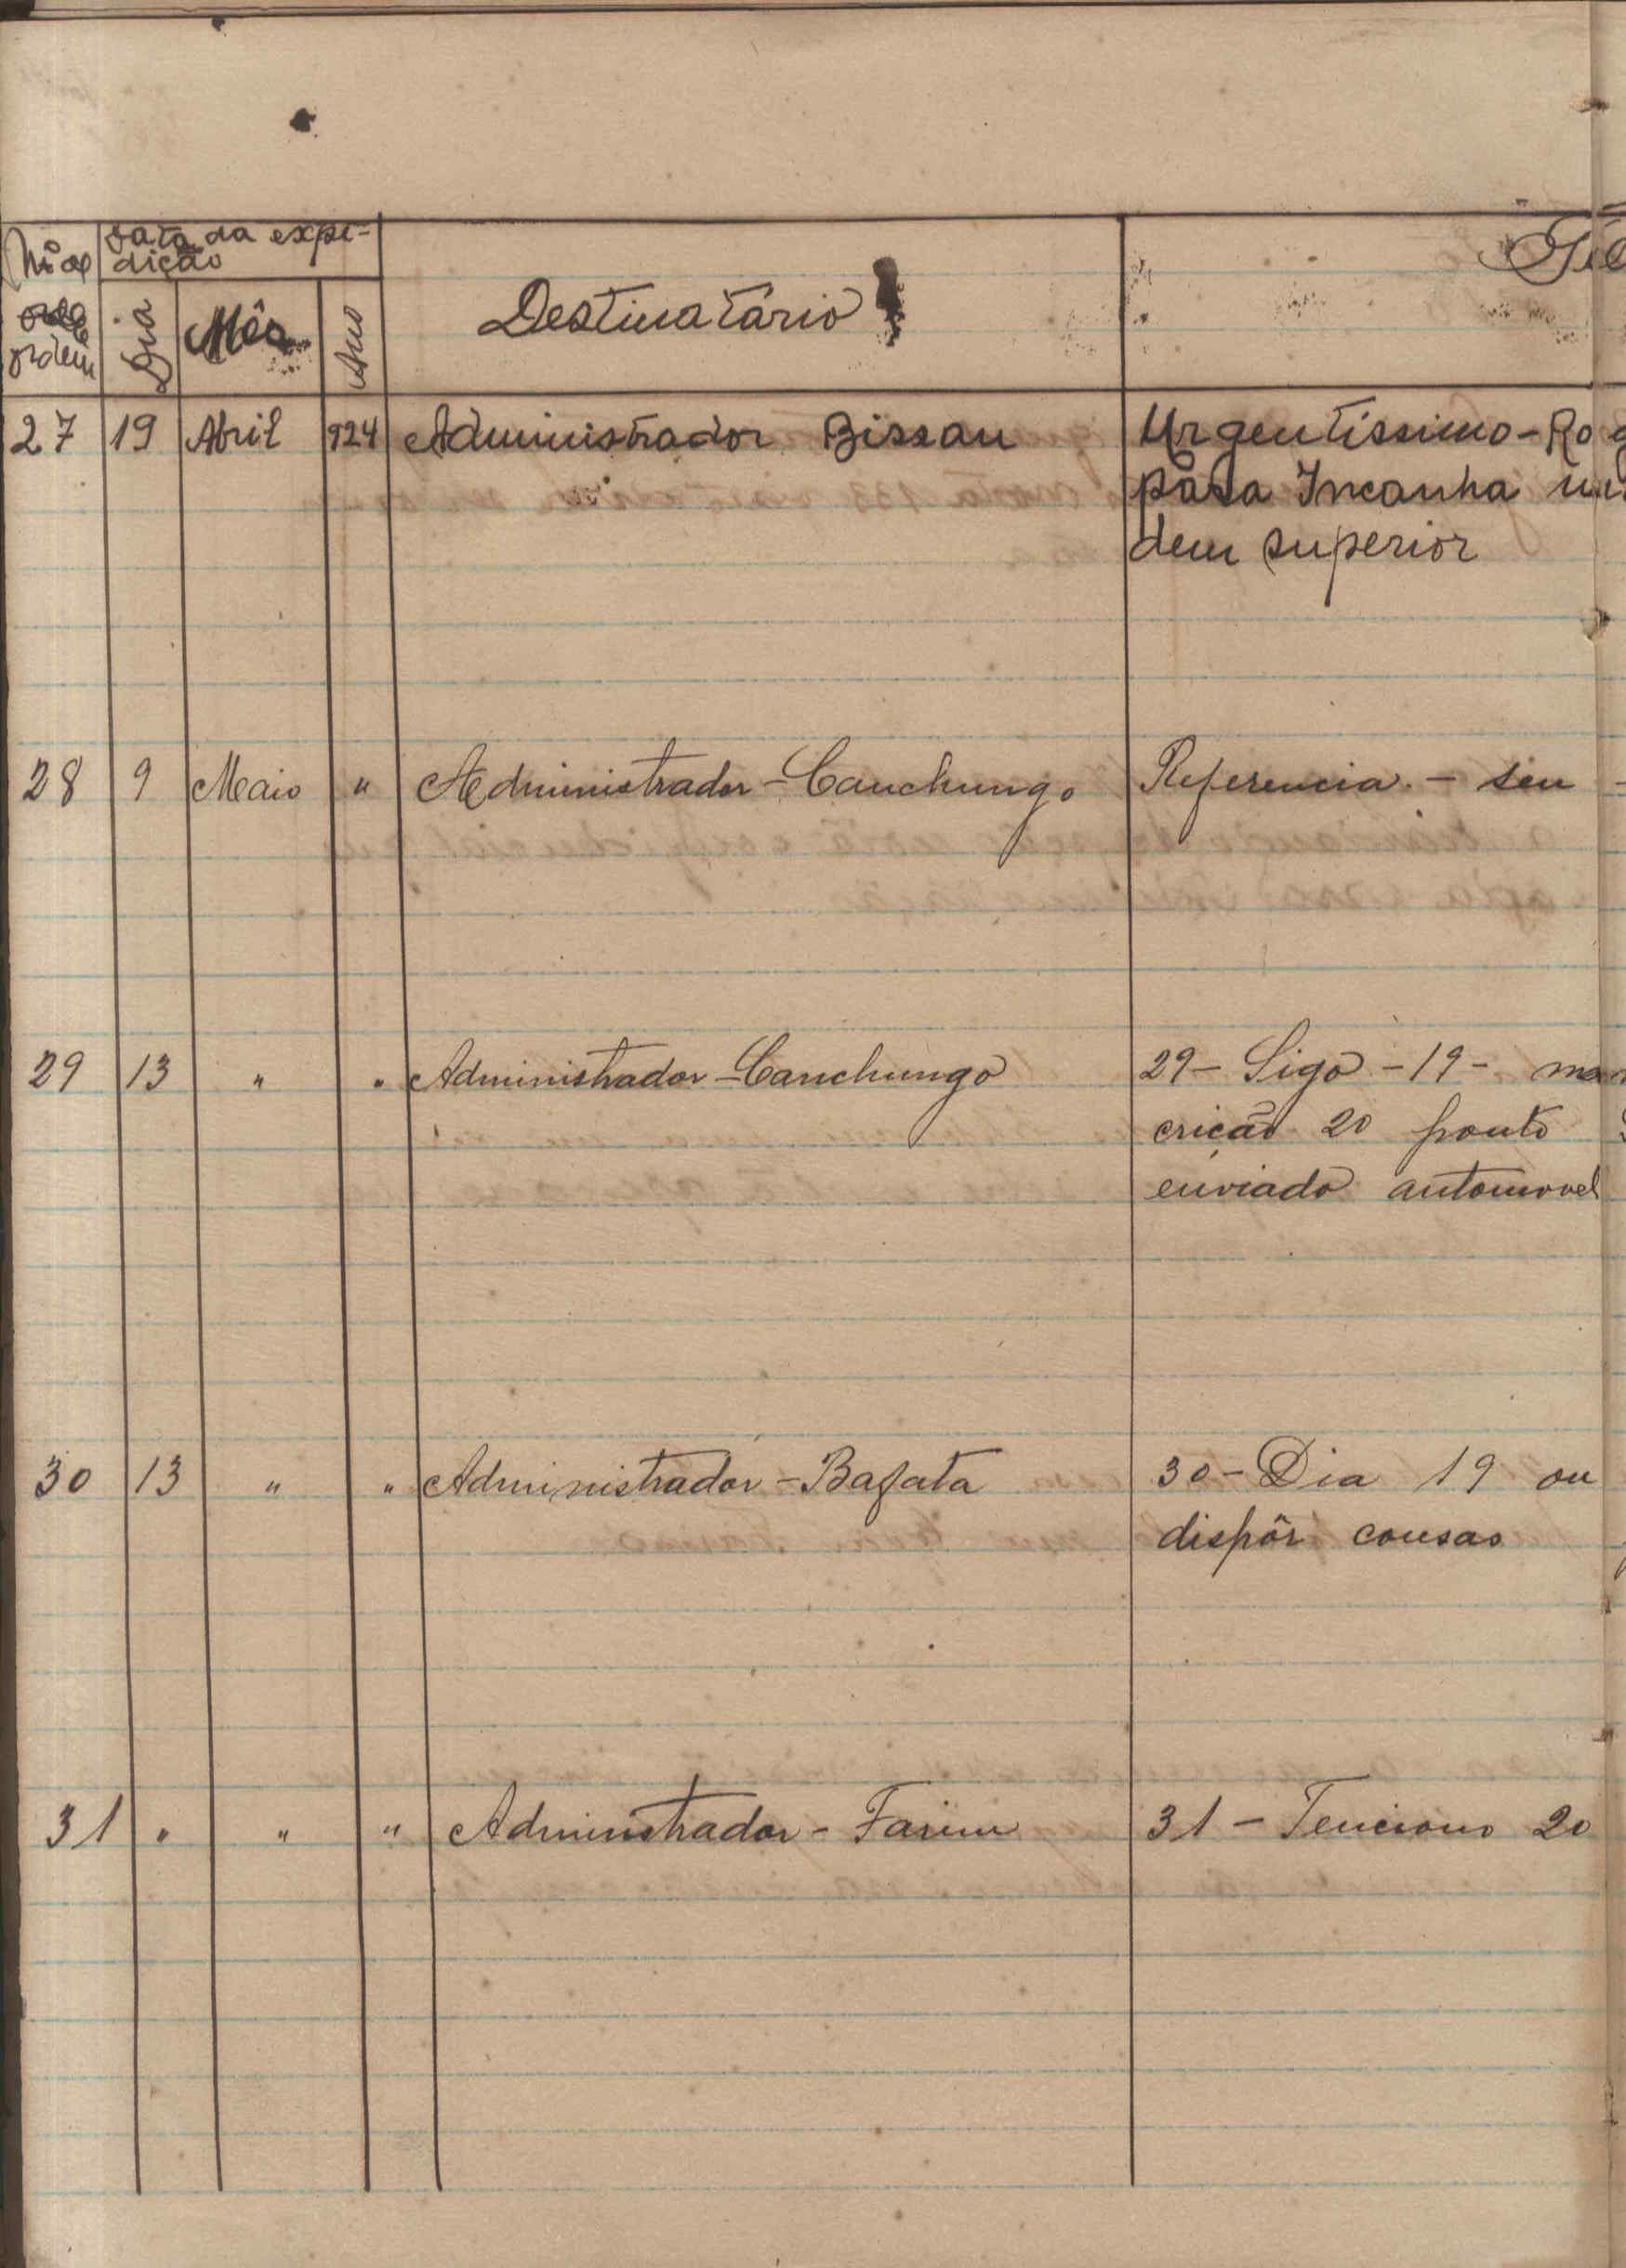 Nº de
ordem
Data da expe-
dição
Dia
Mês
Ano
Destinatário
27 19 Abril 924 Administrador Bissau Urgentissimo - Ro
para Incanha
dem superior
28 9 Maio " Administrador - Canchungo Referencia. - seu -
29 13 " " Administrador - Canchungo 29 - Sigo - 19 -
crição 20 ponto
enviado automovel
30 13 " " Administrador - Bafata 30 - Dia 19 ou
dispôr cousas
31 " " " Administrador - Farim 31 - Tenciono 20